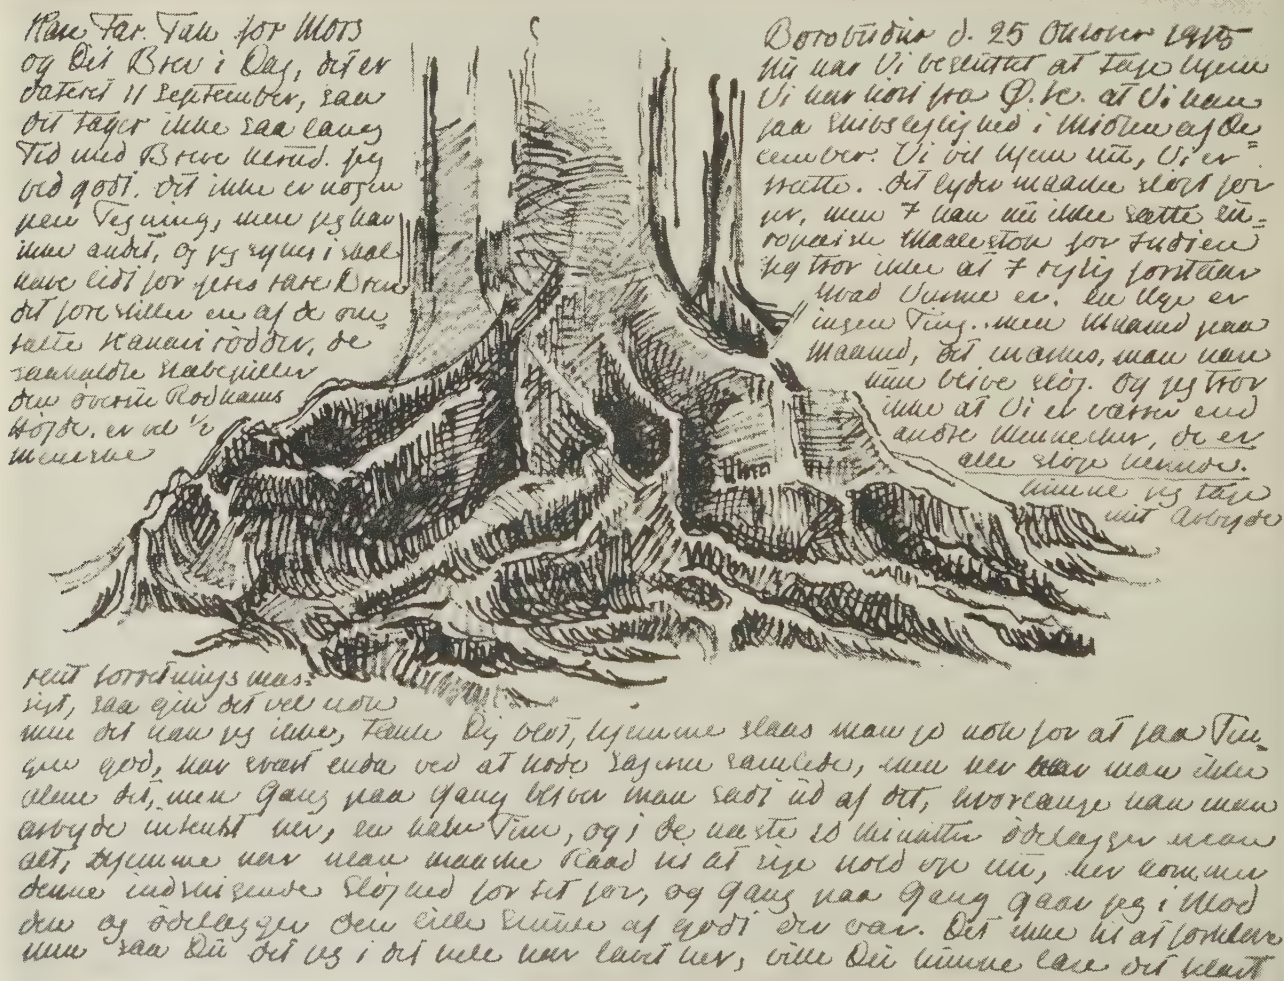 Kære Far. Tak for Mors
og Dit Brev i Dag, det er
dateret 11 September, saa
det tager ikke saa lang
Tid med Breve herud. Jeg
ved godt. det ikke er nogen
pen Tegning, men jeg har
ikke andet, og jeg synes i skal
have lidt for jeres rare Breve
det forestiller en af de om-
talte Kanari rødder, de
saakaldte Stabepiller
den øverste Rodkams
Højde. er vel ½
menneske
Borobüdür d. 25 Oktober 1915
Nu har Vi besluttet at tage hjem
Vi har hørt fra Ø.K. at Vi kan
faa Skibslejlighed i Midten af De=
cember. Vi vil hjem nu, Vi er
trætte. Det lyder maaske sløjt for
jer, men I kan nu ikke sætte Eu=
ropæisk Maalestok for Indien
Jeg tror ikke at I rigtig forstaar
hvad Varme er. en Uge er
ingen Ting. men Maaned paa
Maaned, det mærkes, man kan
kun blive sløj. Og jeg tror
ikke at Vi er værre end
andre Mennesker, de er
alle sløje herude.
kunne jeg tage
mit Arbejde
rent forretningsmæs=
sigt, saa gik det vel nok
men det kan jeg ikke, tænk Dig blot, hjemme slaas man jo nok for at faa Tin-
gene god, har svært enda ved at holde Sagerne samlede, men her har man ikke
alene det, men Gang paa Gang bliver man sadt ud af det, hvorlænge kan man
arbejde intenst her, en halv Time, og i de næste 10 Minutter ødelægger man
alt, Hjemme har man maaske Raad til at sige hold op nu, her kommer
denne indsnigende Sløjhed før det før, og Gang paa Gang gaar jeg i Mod
den og ødelægger den lille Smule af godt der var. Det ikke til at forklare
men saa Du det jeg i det hele har lavet her, ville Du kunne læse det klart